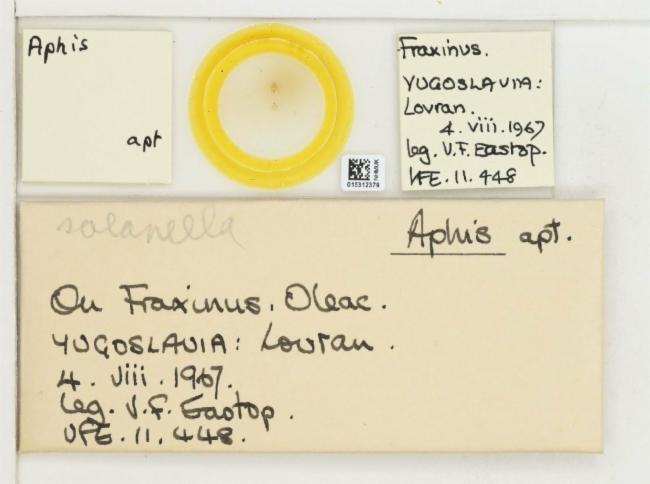 Aphis
apt
NHMUK
015312379
Fraxinus.
YUGOSLAVIA:
Lovran.
4. viii. 1967
leg. V.F. Eastop.
VFE. 11. 448
solanella
Aphis apt.
On Fraxinus. Oleac.
YUGOSLAVIA: Lovran.
4. viii. 1967.
leg. V.F. Eastop.
VFE. 11. 448.